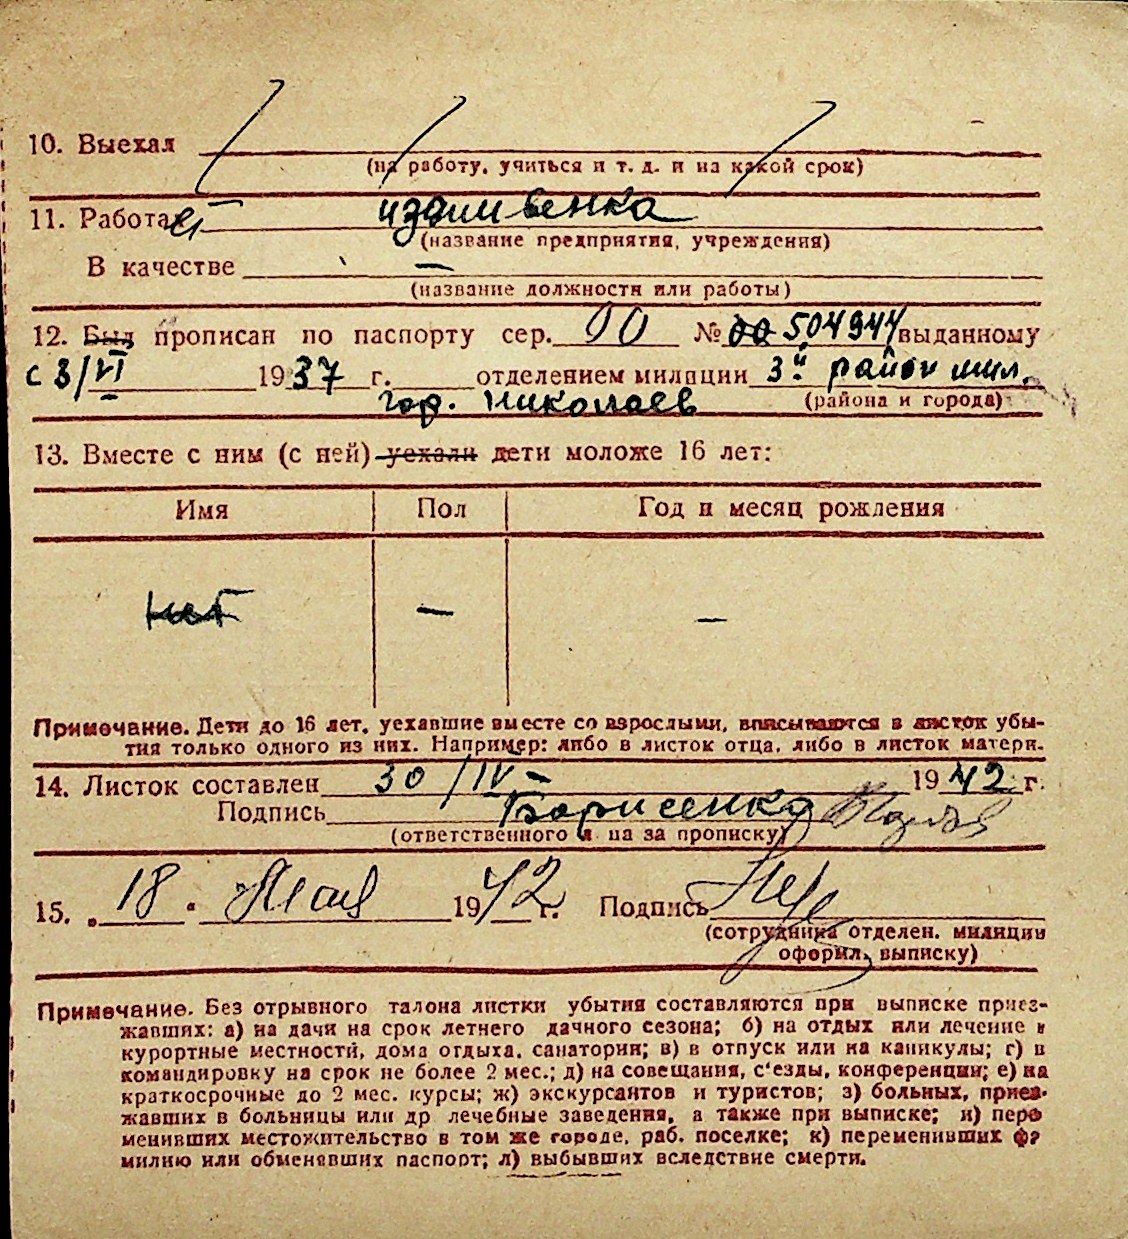 10. Выехал
(на работу, учиться и т. д. и на какой срок)
11. Работает иждивенка
(название предприятия, учреждения)
В качестве —
(название должности или работы)
12. Был прописан по паспорту сер. ОО № 504944 выданному
с 3/VI 1937 г. отделением милиции 3й район мил.
гор. Николаев (района и города)
13. Вместе с ним (с ней) уехали дети моложе 16 лет:
Имя Пол Год и месяц рождения
нет — —
Примечание. Дети до 16 лет, уехавшие вместе со взрослыми, вписываются в листок убы-
тия только одного из них. Например: либо в листок отца, либо в листок матери.
14. Листок составлен 30/IV - 1942 г.
Подпись Борисенко
(ответственного лица за прописку)
15. „18“ Мая 1942 г. Подпись
(сотрудника отделен. милиции
оформл. выписку)
Примечание. Без отрывного талона листки убытия составляются при выписке приез-
жавших: а) на дачи на срок летнего дачного сезона; б) на отдых или лечение в
курортные местности, дома отдыха, санатории; в) в отпуск или на каникулы; г) в
командировку на срок не более 2 мес.; д) на совещания, с'езды, конференции; е) на
краткосрочные до 2 мес. курсы; ж) экскурсантов и туристов; з) больных, приез-
жавших в больницы или др лечебные заведения, а также при выписке; и) пере
менивших местожительство в том же городе, раб. поселке; к) переменивших фа
милию или обменявших паспорт; л) выбывших вследствие смерти.